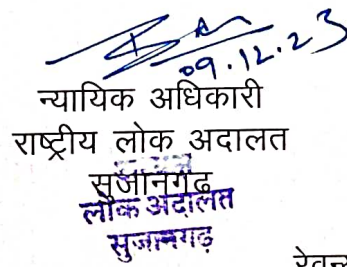 09.12.23
न्यायिक अधिकारी
राष्ट्रीय लोक अदालत
सुजानगढ़
लोक अदालत
सुजानगढ़